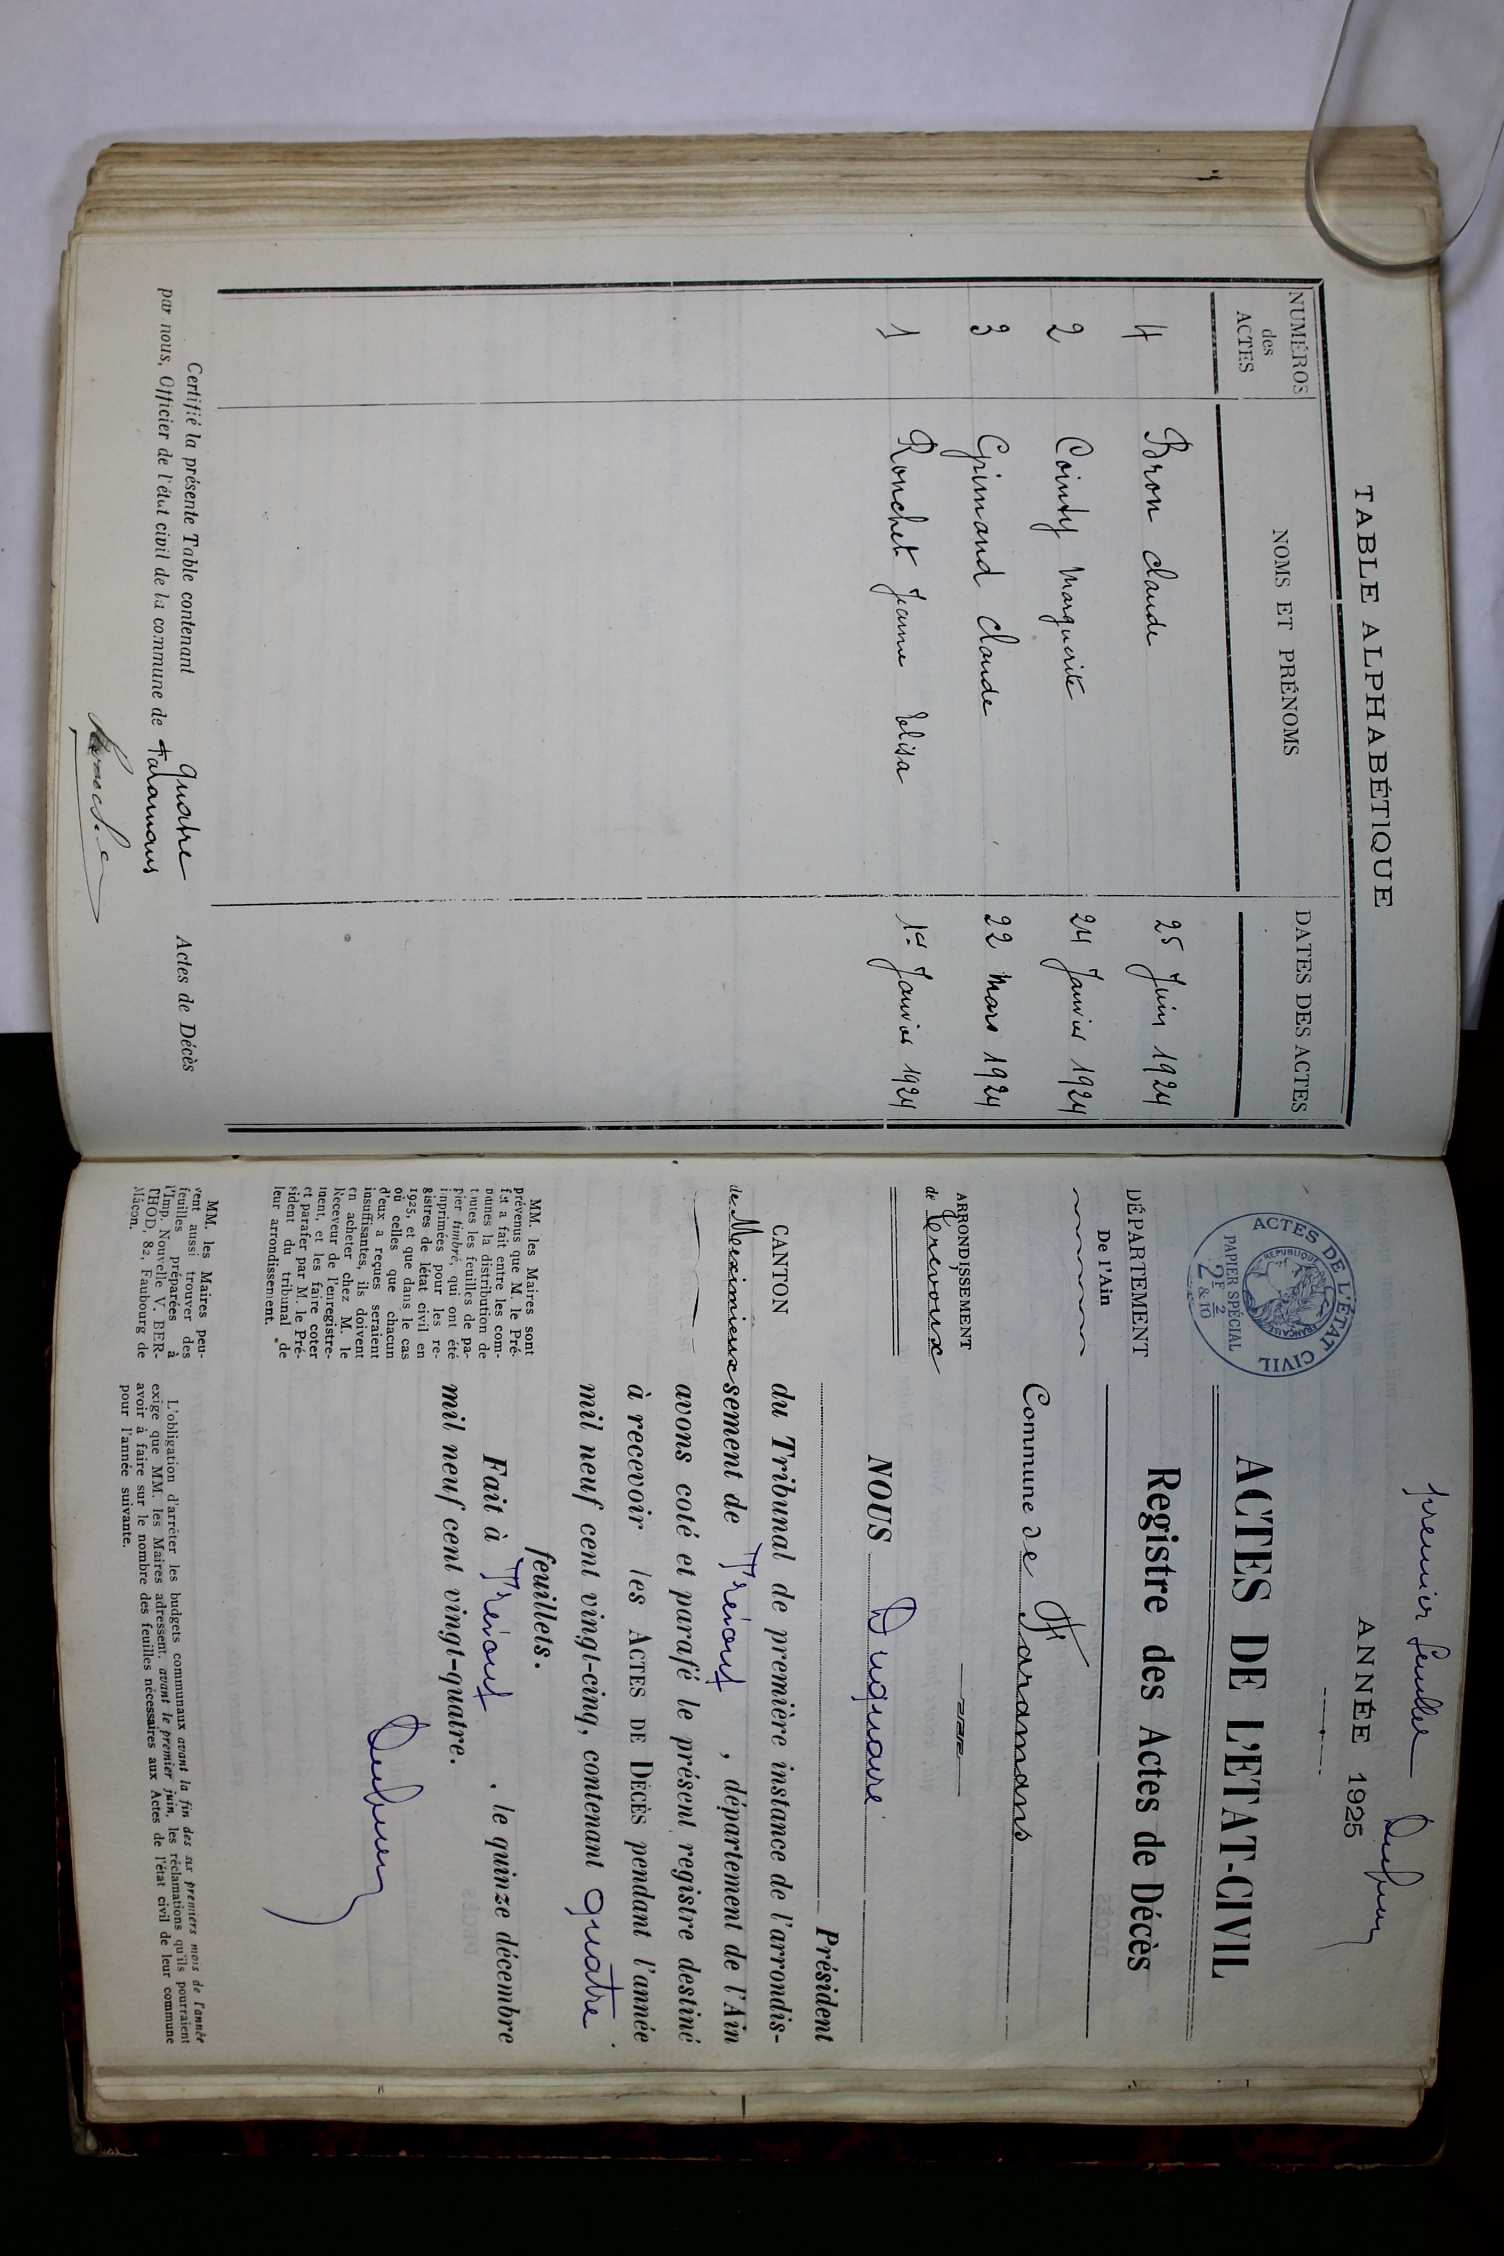 TABLE ALPHABÉTIQUE
NUMÉROS des ACTES NOMS ET PRÉNOMS DATES DES ACTES
4 Bron Claude 25 Juin 1924
2 Cointy Marguerite 24 Janvier 1924
3 Grimand Claude 22 Mars 1924
1 Ronchet Jeanne Elisa 1er Janvier 1924
Certifié la présente Table contenant quatre Actes de Décès
par nous, Officier de l'état civil de la commune de Faramans
premier feuillet
ANNÉE 1925
ACTES DE L'ÉTAT CIVIL
RÉPUBLIQUE FRANÇAISE
PAPIER SPÉCIAL
2F 2/10
ACTES DE L'ÉTAT-CIVIL
Registre des Actes de Décès
DÉPARTEMENT
De l'Ain
Commune de Faramans
ARRONDISSEMENT
de Trévoux
NOUS Duquaire
Président
CANTON
de Meximieux
du Tribunal de première instance de l'arrondis-
sement de Trévoux, département de l'Ain
avons coté et parafé le présent registre destiné
à recevoir les ACTES DE DÉCÈS pendant l'année
mil neuf cent vingt-cinq, contenant quatre
feuillets.
Fait à Trévoux, le quinze décembre
mil neuf cent vingt-quatre.
MM. les Maires sont
prévenus que M. le Pré-
fet a fait entre les com-
munes la distribution de
toutes les feuilles de pa-
pier timbré, qui ont été
imprimées pour les re-
gistres de létat civil en
1925, et que dans le cas
où celles que chacun
d'eux a reçues seraient
insuffisantes, ils doivent
en acheter chez M. le
Receveur de l'enregistre-
ment, et les faire coter
et parafer par M. le Pré-
sident du tribunal de
leur arrondissement.
MM. les Maires peu-
vent aussi trouver des
feuilles préparées à
l'Imp. Nouvelle V. BER-
THOD, 82, Faubourg de
Mâcon.
L'obligation d'arrêter les budgets communaux avant la fin des six premiers mois de l'année
exige que MM. les Maires adressent, avant le premier juin, les réclamations qu'ils pourraient
avoir à faire sur le nombre des feuilles nécessaires aux Actes de l'état civil de leur commune
pour l'année suivante.